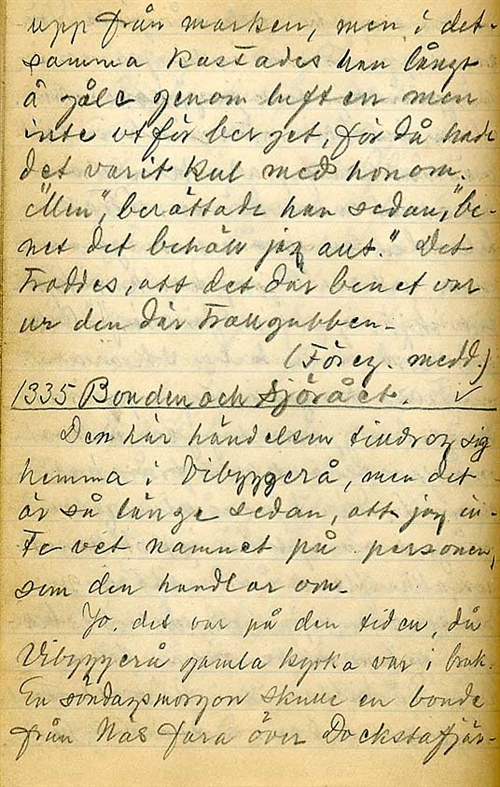 upp från marken, men i det-
samma kastades han långt
å gålE genom luften men
inte utför berget, för då hade
det varit kul med honom.
"Men", berättade han sedan, "be-
net det behölt jag ant." Det
troddes, att det där benet var
ur den där trollgubben.
(Föreg. medd.)
1335 Bonden och Sjörået. ✓
Den här händelsen tilldrog sig
hemma i Vibyggerå, men det
är så länge sedan, att jag in-
te vet namnet på personen,
som den handlar om.
Jo, det var på den tiden, då
Vibyggerå gamla kyrka var i bruk.
En söndagsmorgon skulle en bonde
från Näs fara över Dockstafjär-